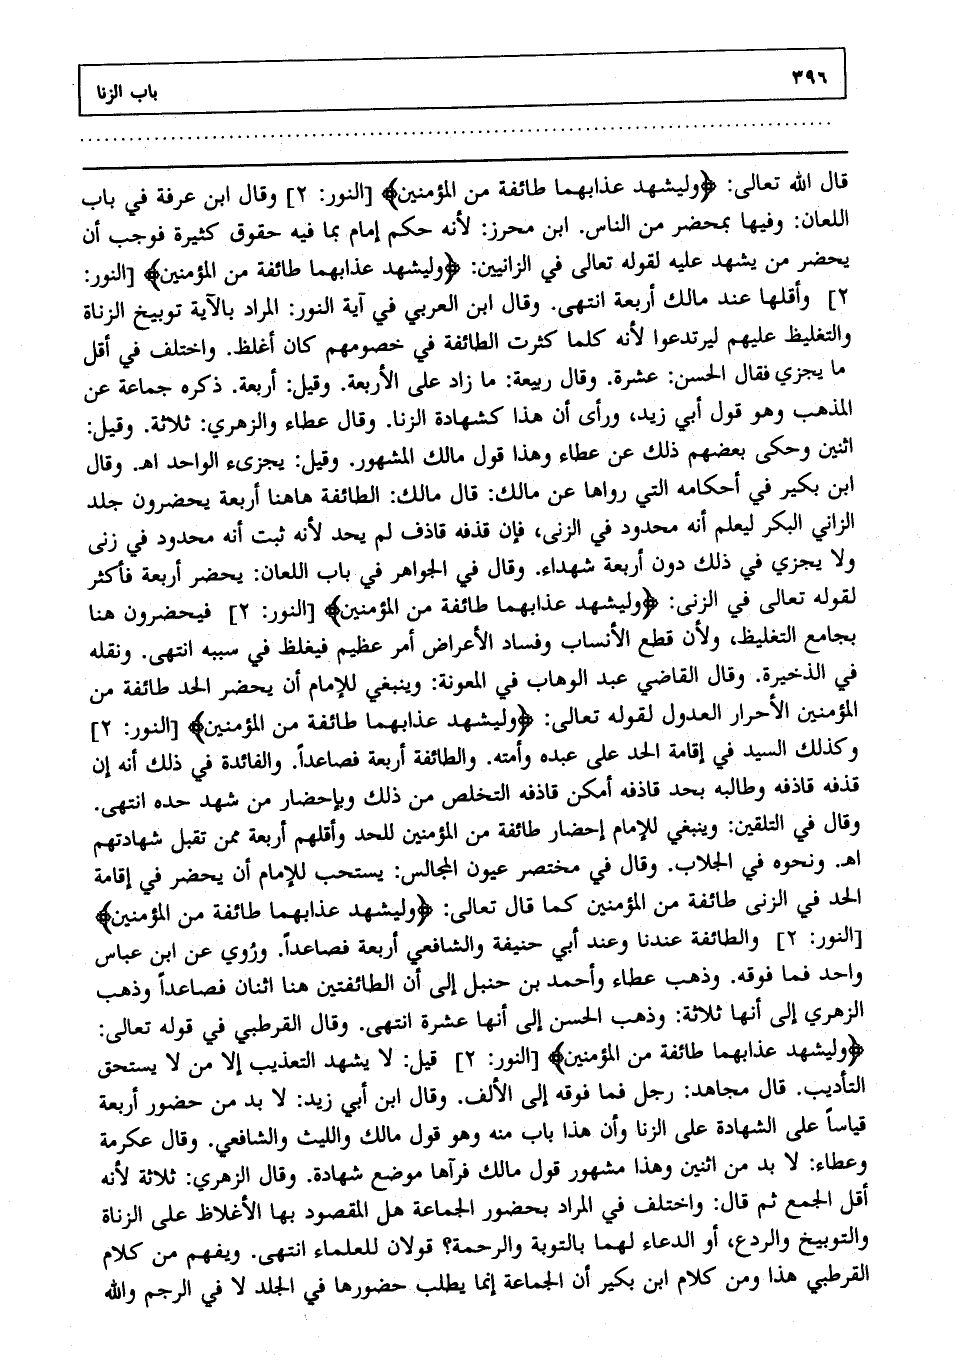 ٣٩٦
باب الزنا
قال الله تعالى: ﴿وليشهد عذابهما طائفة من المؤمنين﴾ [النور: ٢] وقال ابن عرفة في باب
اللعان: وفيها بمحضر من الناس. ابن محرز: لأنه حكم إمام بما فيه حقوق كثيرة فوجب أن
يحضر من يشهد عليه لقوله تعالى في الزانيين: ﴿وليشهد عذابهما طائفة من المؤمنين﴾ [النور:
٢] وأقلها عند مالك أربعة انتهى. وقال ابن العربي في آية النور: المراد بالآية توبيخ الزناة
والتغليظ عليهم ليرتدعوا لأنه كلما كثرت الطائفة في خصومهم كان أغلظ. واختلف في أقل
ما يجزي فقال الحسن: عشرة. وقال ربيعة: ما زاد على الأربعة. وقيل: أربعة. ذكره جماعة عن
المذهب وهو قول أبي زيد، ورأى أن هذا كشهادة الزنا. وقال عطاء والزهري: ثلاثة. وقيل:
اثنين وحكى بعضهم ذلك عن عطاء وهذا قول مالك المشهور. وقيل: يجزىء الواحد اهـ. وقال
ابن بكير في أحكامه التي رواها عن مالك: قال مالك: الطائفة هاهنا أربعة يحضرون جلد
الزاني البكر ليعلم أنه محدود في الزنى، فإن قذفه قاذف لم يحد لأنه ثبت أنه محدود في زنى
ولا يجزي في ذلك دون أربعة شهداء. وقال في الجواهر في باب اللعان: يحضر أربعة فأكثر
لقوله تعالى في الزنى: ﴿وليشهد عذابهما طائفة من المؤمنين﴾ [النور: ٢] فيحضرون هنا
بجامع التغليظ، ولأن قطع الأنساب وفساد الأعراض أمر عظيم فيغلظ في سببه انتهى. ونقله
في الذخيرة. وقال القاضي عبد الوهاب في المعونة: وينبغي للإمام أن يحضر الحد طائفة من
المؤمنين الأحرار العدول لقوله تعالى: ﴿وليشهد عذابهما طائفة من المؤمنين﴾ [النور: ٢]
وكذلك السيد في إقامة الحد على عبده وأمته. والطائفة أربعة فصاعداً. والفائدة في ذلك أنه إن
قذفه قاذفه وطالبه بحد قاذفه أمكن قاذفه التخلص من ذلك وبإحضار من شهد حده انتهى.
وقال في التلقين: وينبغي للإمام إحضار طائفة من المؤمنين للحد وأقلهم أربعة ممن تقبل شهادتهم
اهـ. ونحوه في الجلاب. وقال في مختصر عيون المجالس: يستحب للإمام أن يحضر في إقامة
الحد في الزنى طائفة من المؤمنين كما قال تعالى: ﴿وليشهد عذابهما طائفة من المؤمنين﴾
[النور: ٢] والطائفة عندنا وعند أبي حنيفة والشافعي أربعة فصاعداً. ورُوي عن ابن عباس
واحد فما فوقه. وذهب عطاء وأحمد بن حنبل إلى أن الطائفتين هنا اثنان فصاعداً وذهب
الزهري إلى أنها ثلاثة: وذهب الحسن إلى أنها عشرة انتهى. وقال القرطبي في قوله تعالى:
﴿وليشهد عذابهما طائفة من المؤمنين﴾ [النور: ٢] قيل: لا يشهد التعذيب إلا من لا يستحق
التأديب. قال مجاهد: رجل فما فوقه إلى الألف. وقال ابن أبي زيد: لا بد من حضور أربعة
قياساً على الشهادة على الزنا وأن هذا باب منه وهو قول مالك والليث والشافعي. وقال عكرمة
وعطاء: لا بد من اثنين وهذا مشهور قول مالك فرآها موضع شهادة. وقال الزهري: ثلاثة لأنه
أقل الجمع ثم قال: واختلف في المراد بحضور الجماعة هل المقصود بها الأغلاظ على الزناة
والتوبيخ والردع، أو الدعاء لهما بالتوبة والرحمة؟ قولان للعلماء انتهى. ويفهم من كلام
القرطبي هذا ومن كلام ابن بكير أن الجماعة إنما يطلب حضورها في الجلد لا في الرجم والله